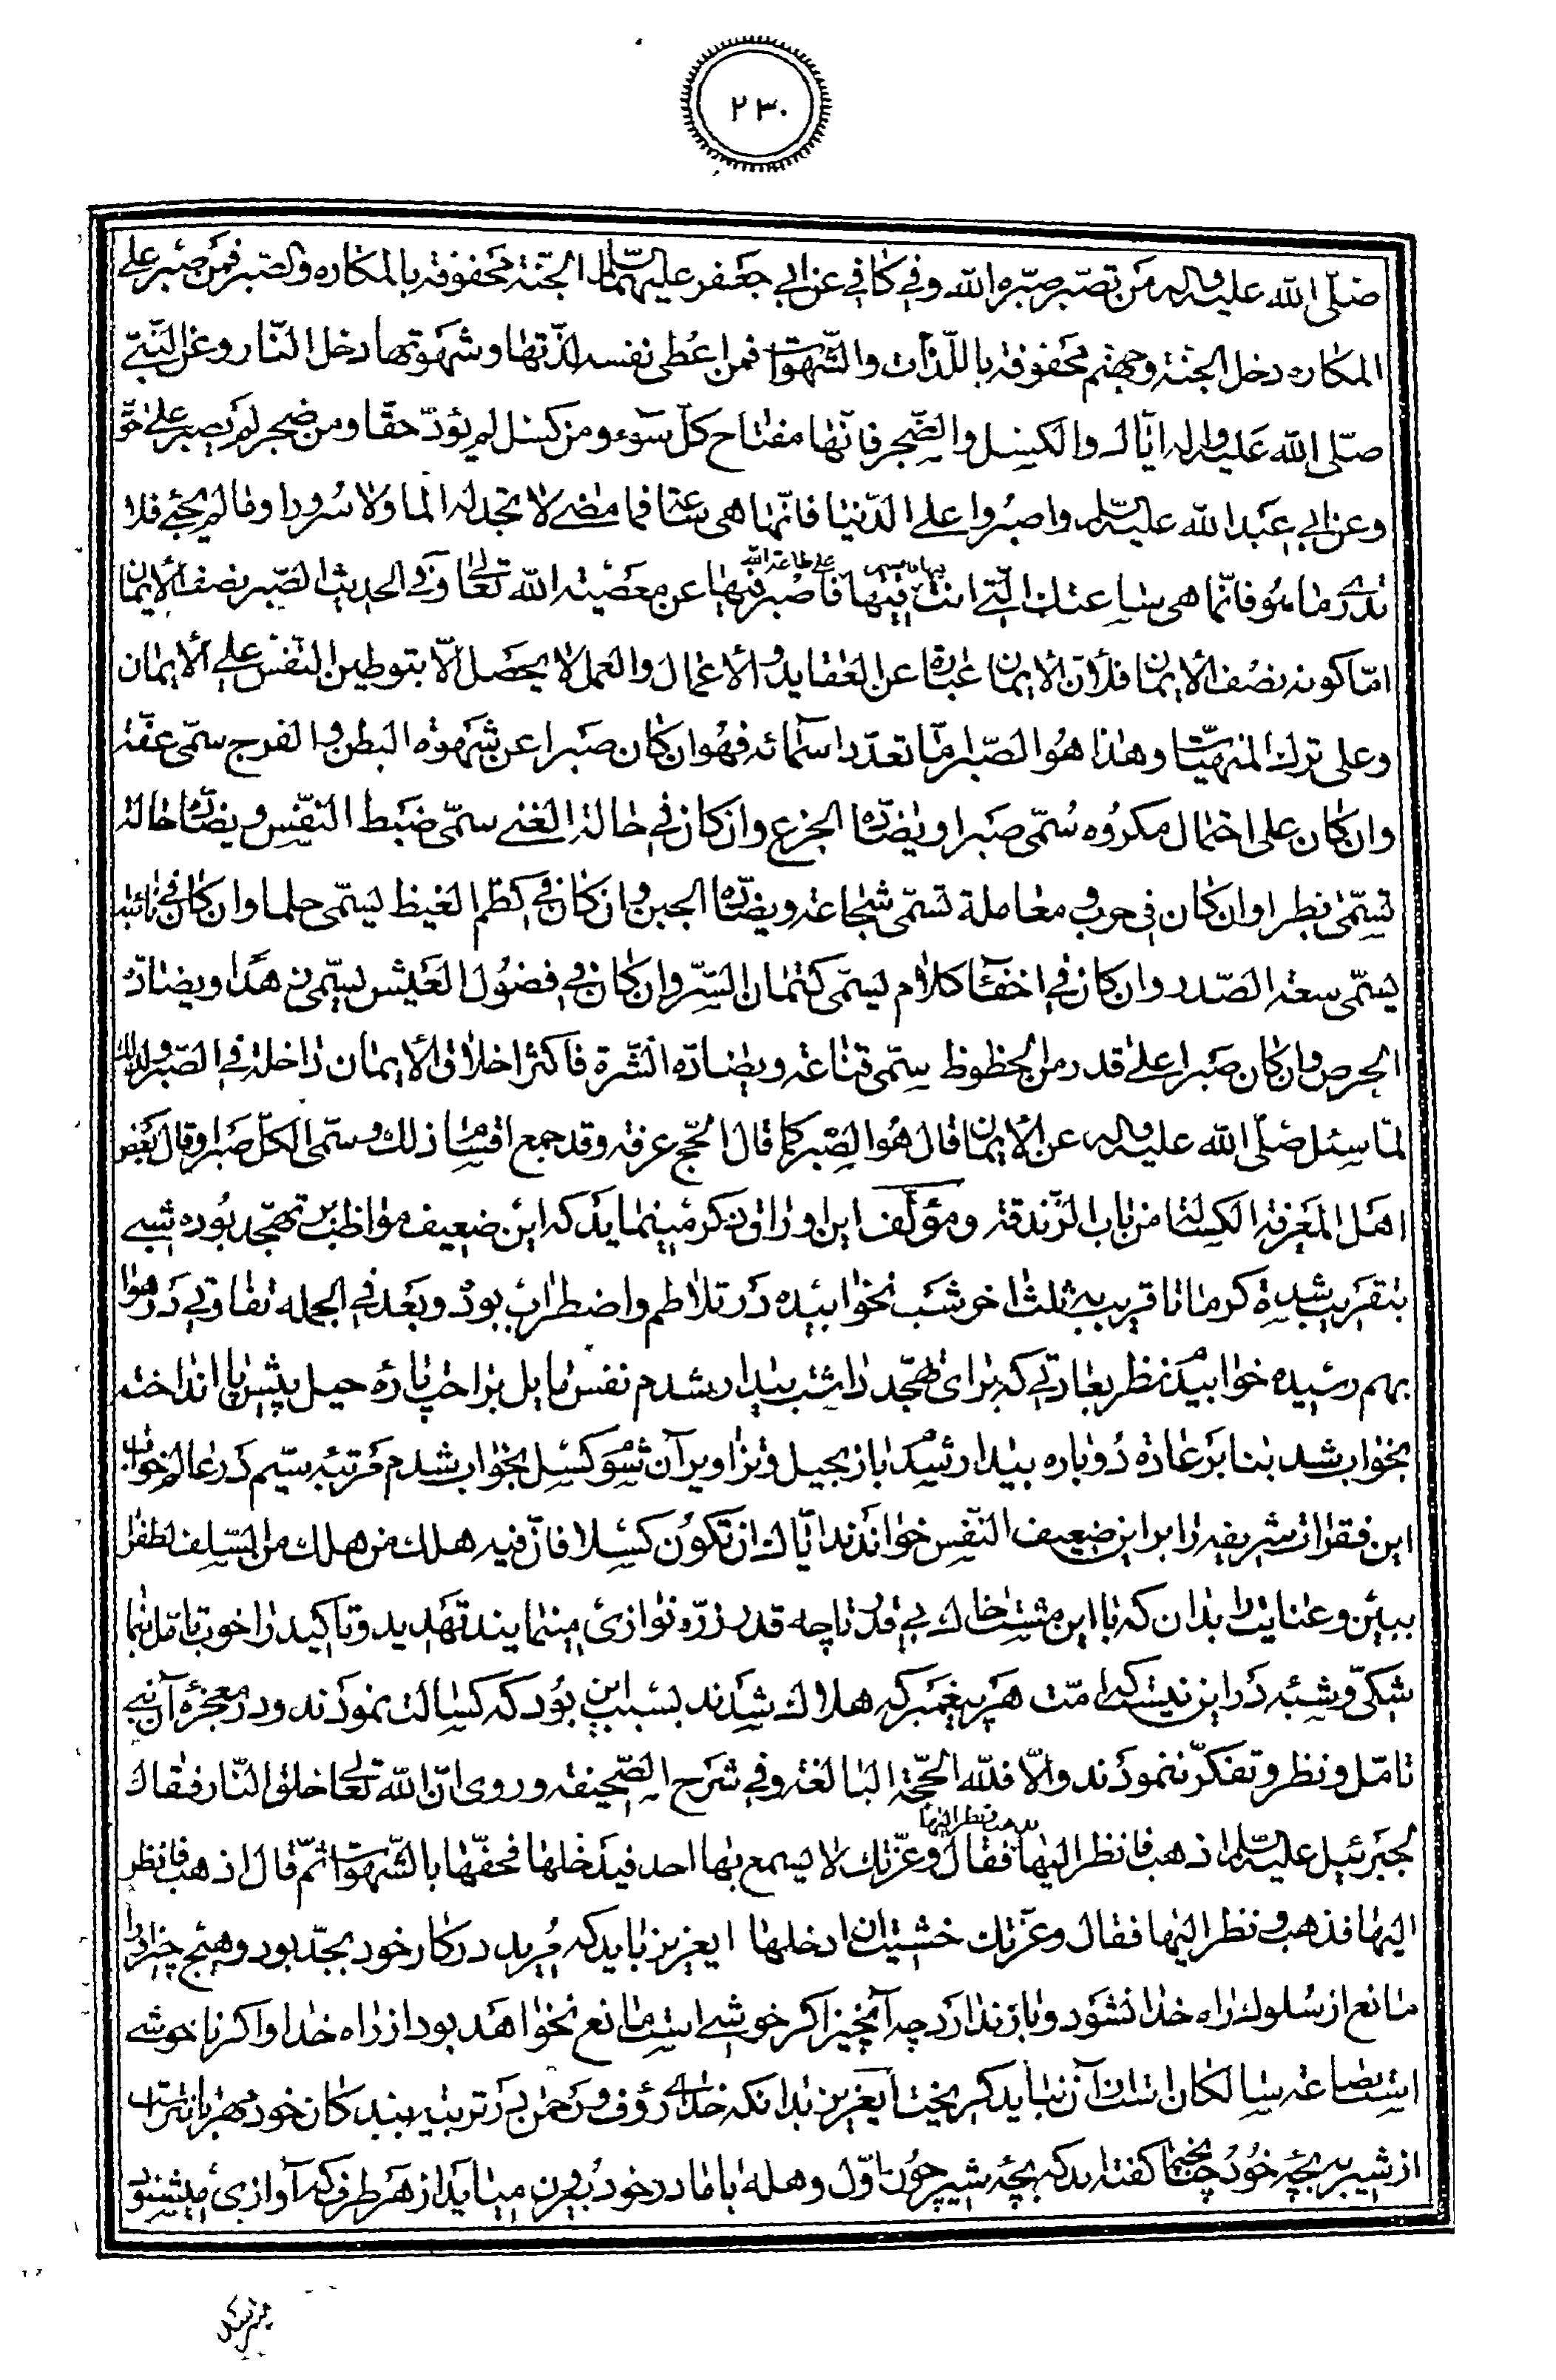 ۲۳۰
صلّی الله علیه واله من تصبّر صبّره الله وفی کافی عن ابی جعفر علیهما السّلام الجنّة محفوفة بالمکاره والصّبر فمن صبر علی
المکاره دخل الجنّة وجهنّم محفوفة باللّذّات والشّهوات فمن اعطی نفسه لذّتها وشهوتها دخل النّار وعن النّبیّ
صلّی الله علیه واله ایّاک والکسل والضّجر فانّها مفتاح کلّ سوء ومن کسل لم یؤدّ حقّا ومن ضجر لم یصبر علی حقّ
وعن ابی عبد الله علیه السّلام واصبروا علی الدّنیا فانّما هی ساعة فما مضی لا تجد له الما ولا سرورا وما لم یجئ فلا
تدری ما هو فانّما هی ساعتک الّتی انت فیها فاصبر فیها علی طاعة الله عن معصیة الله تعالی وفی الحدیث الصّبر نصف الایمان
امّا کونه نصف الایمان فلانّ الایمان عبارة عن العقاید والاعمال والعمل لا یحصل الّا بتوطین النّفس علی الایمان
وعلی ترک المنهیّات وهذا هو الصّبر امّا تعدّد اسمائه فهو ان کان صبرا عن شهوة البطن والفرج سمّی عفّة
وان کان علی احتمال مکروه سمّی صبرا ویضادّه الجزع وان کان فی حالة الغنی سمّی ضبط النّفس ویضادّه حالة
تسمّی بطرا وان کان فی حرب و معاملة تسمّی شجاعة ویضادّه الجبن وان کان فی کظم الغیظ یسمّی حلما وان کان فی نائبة
یسمّی سعة الصّدر وان کان فی اخفاء کلام یسمّی کتمان السّرّ وان کان فی فضول العیش یسمّی زهدا ویضادّه
الحرص وان کان صبرا علی قدر من الحظوظ سمّی قناعة ویضادّه الشّرة فاکثر اخلاق الایمان داخلة فی الصّبر ولذلک
لمّا سئل صلّی الله علیه واله عن الایمان قال هو الصّبر کما قال الحجّ عرفة وقد جمع اقسام ذلک وسمّی الکلّ صبرا وقال بعض
اهل المعرفة الکسالة من باب الزّندقة ومؤلّف این اوراق ذکر مینماید که این ضعیف مواظب بر تهجّد بوده شبی
بتقریب شدة کرما تا قریب به ثلث اخر شب نخوابیده در تلاطم واضطراب بود وبعد فی الجمله تفاوتی در هوا
بهم رسیده خوابیدم نظر بعادتی که برای تهجّد داشت بیدار شدم نفس مایل براحت پاره حیل پیش پا انداخته
بخواب شد بنا بر عاده دوباره بیدار شدم باز بحیل وتزاویر آن شوم کسل بخواب شدم مرتبه سیّم در عالم خواب
این فقرات شریفه را بر این ضعیف النّفس خواندند ایّاک ان تکون کسلا فانّ فیه هلک من هلک من السّلف لطف را
ببین وعنایت را بدان که با این مشت خاک بی قدر تا چه قدر ذرّه نوازی مینمایند تهدید وتاکید را خوب تامّل نما
شکّی وشبه در این نیست که امّت هر پیغمبر که هلاک شدند بسبب این بود که کسالت نمودند ودر معجزه آن نبی
تامّل ونظر وتفکّر ننمودند والّا فللّه الحجّة البالغة وفی شرح الصّحیفة وروی انّ الله تعالی خلق النّار فقال
لجبرئیل علیه السّلم اذهب فانظر الیها فذهب فنظر الیها فقال وعزّتک لا یسمع بها احد فیدخلها فحفّها بالشّهوات ثمّ قال اذهب فانظر
الیها فذهب ونظر الیها فقال وعزّتک خشیت ان ادخلها ایعزیز باید که مرید در کار خود بجدّ بود وهیچ چیز او را
مانع از سلوک راه خدا نشود وباز ندارد چه آنچیز اکر خوشی است مانع نخواهد بود از راه خدا واکر ناخوشی
است بضاعة سالکان است از آن نباید کریخت ایعزیز بدانکه خدای رؤف ورحمن در تربیت بندکان خود مهربانتر است
از شیر به بچّه خود چنانچه کفته‌اند که بچّه شیر چون اوّل وهله با مادر خود بیرون میاید از هر طرف که آوازی میشنود